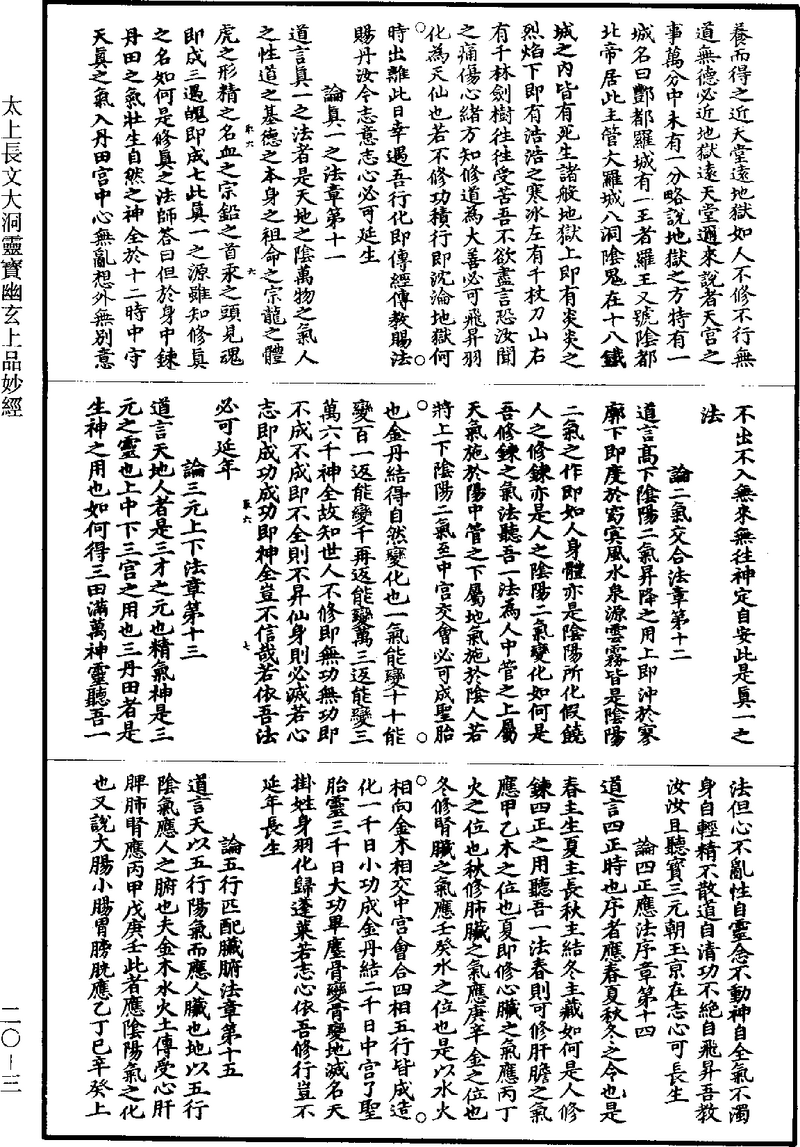 養而得之近天堂遠地獄如人不修不行無
道無德必近地獄遠天堂邇來說者天宮之
事萬分中未有一分略說地獄之方特有一
城名曰酆都羅城有一王者羅王又號陰都
北帝居此主管大羅城八洞陰鬼在十八鐵
城之內皆有死生諸般地獄上即有炎炎之
烈焰下即有浩浩之寒冰左有千杖刀山右
有千林劍樹往往受苦吾不欲盡言恐汝聞
之痛傷心緒方知修道為大善必可飛昇羽
化為天仙也若不修功積行即沈淪地獄何
時出離此日幸遇吾行化即傳經傳教賜法
賜丹汝令志意志心必可延生
論真一之法章第十一
道言真一之法者是天地之陰萬物之氣人
之性道之基德之本身之祖命之宗龍之體
虎之形精之名血之宗鉛之首汞之頭見魂
即成三遇魄即成七此真一之源雖知修真
之名如何是修真之法師答曰但於身中鍊
丹田之氣壯生自然之神全於十二時中守
天真之氣入丹田宮中心無亂想外無別意
不出不入無來無往神定自安此是真一之
法
論二氣交合法章第十二
道言高下陰陽二氣昇降之用上即沖於寥
廓下即度於窈冥風水泉源雲霧皆是陰陽
二氣之作即如人身體亦是陰陽所化假饒
人之修鍊亦是人之陰陽二氣變化如何是
吾修鍊之氣法聽吾一法為人中管之上屬
天氣施於陽中管之下屬地氣施於陰人若
將上下陰陽二氣至中宮交會必可成聖胎
也金丹結得自然變化也一氣能變十十能
變百一返能變千再返能變萬三返能變三
萬六千神全故知世人不修即無功無功即
不成不成即不全則不昇仙身則必滅若心
志即成功成功即神全豈不信哉若依吾法
必可延年
論三元上下法章第十三
道言天地人者是三才之元也精氣神是三
元之靈也上中下三宮之用也三丹田者是
生神之用也如何得三田滿萬神靈聽吾一
法但心不亂性自靈念不動神自全氣不濁
身自輕精不散道自清功不絕自飛昇吾教
汝汝且聽寶三元朝玉京在志心可長生
論四正應法序章第十四
道言四正時也序者應春夏秋冬之令也是
春主生夏主長秋主結冬主藏如何是人修
鍊四正之用聽吾一法春則可修肝膽之氣
應甲乙木之位也夏即修心臟之氣應丙丁
火之位也秋修肺臟之氣應庚辛金之位也
冬修腎臟之氣應壬癸水之位也是以水火
相向金木相交中宮會合四相五行皆成造
化一千日小功成金丹結二千日中宮了聖
胎靈三千日大功畢塵骨變骨變地滅名天
掛姓身羽化歸蓬萊若志心依吾修行豈不
延年長生
論五行匹配臟腑法章第十五
道言天以五行陽氣而應人臟也地以五行
陰氣應人之腑也夫金木水火土傳受心肝
脾肺腎應丙甲戊庚壬此者應陰陽氣之化
也又說大腸小腸胃膀胱應乙丁巳辛癸上
太上長文大洞靈寶幽玄上品妙經
二〇－三